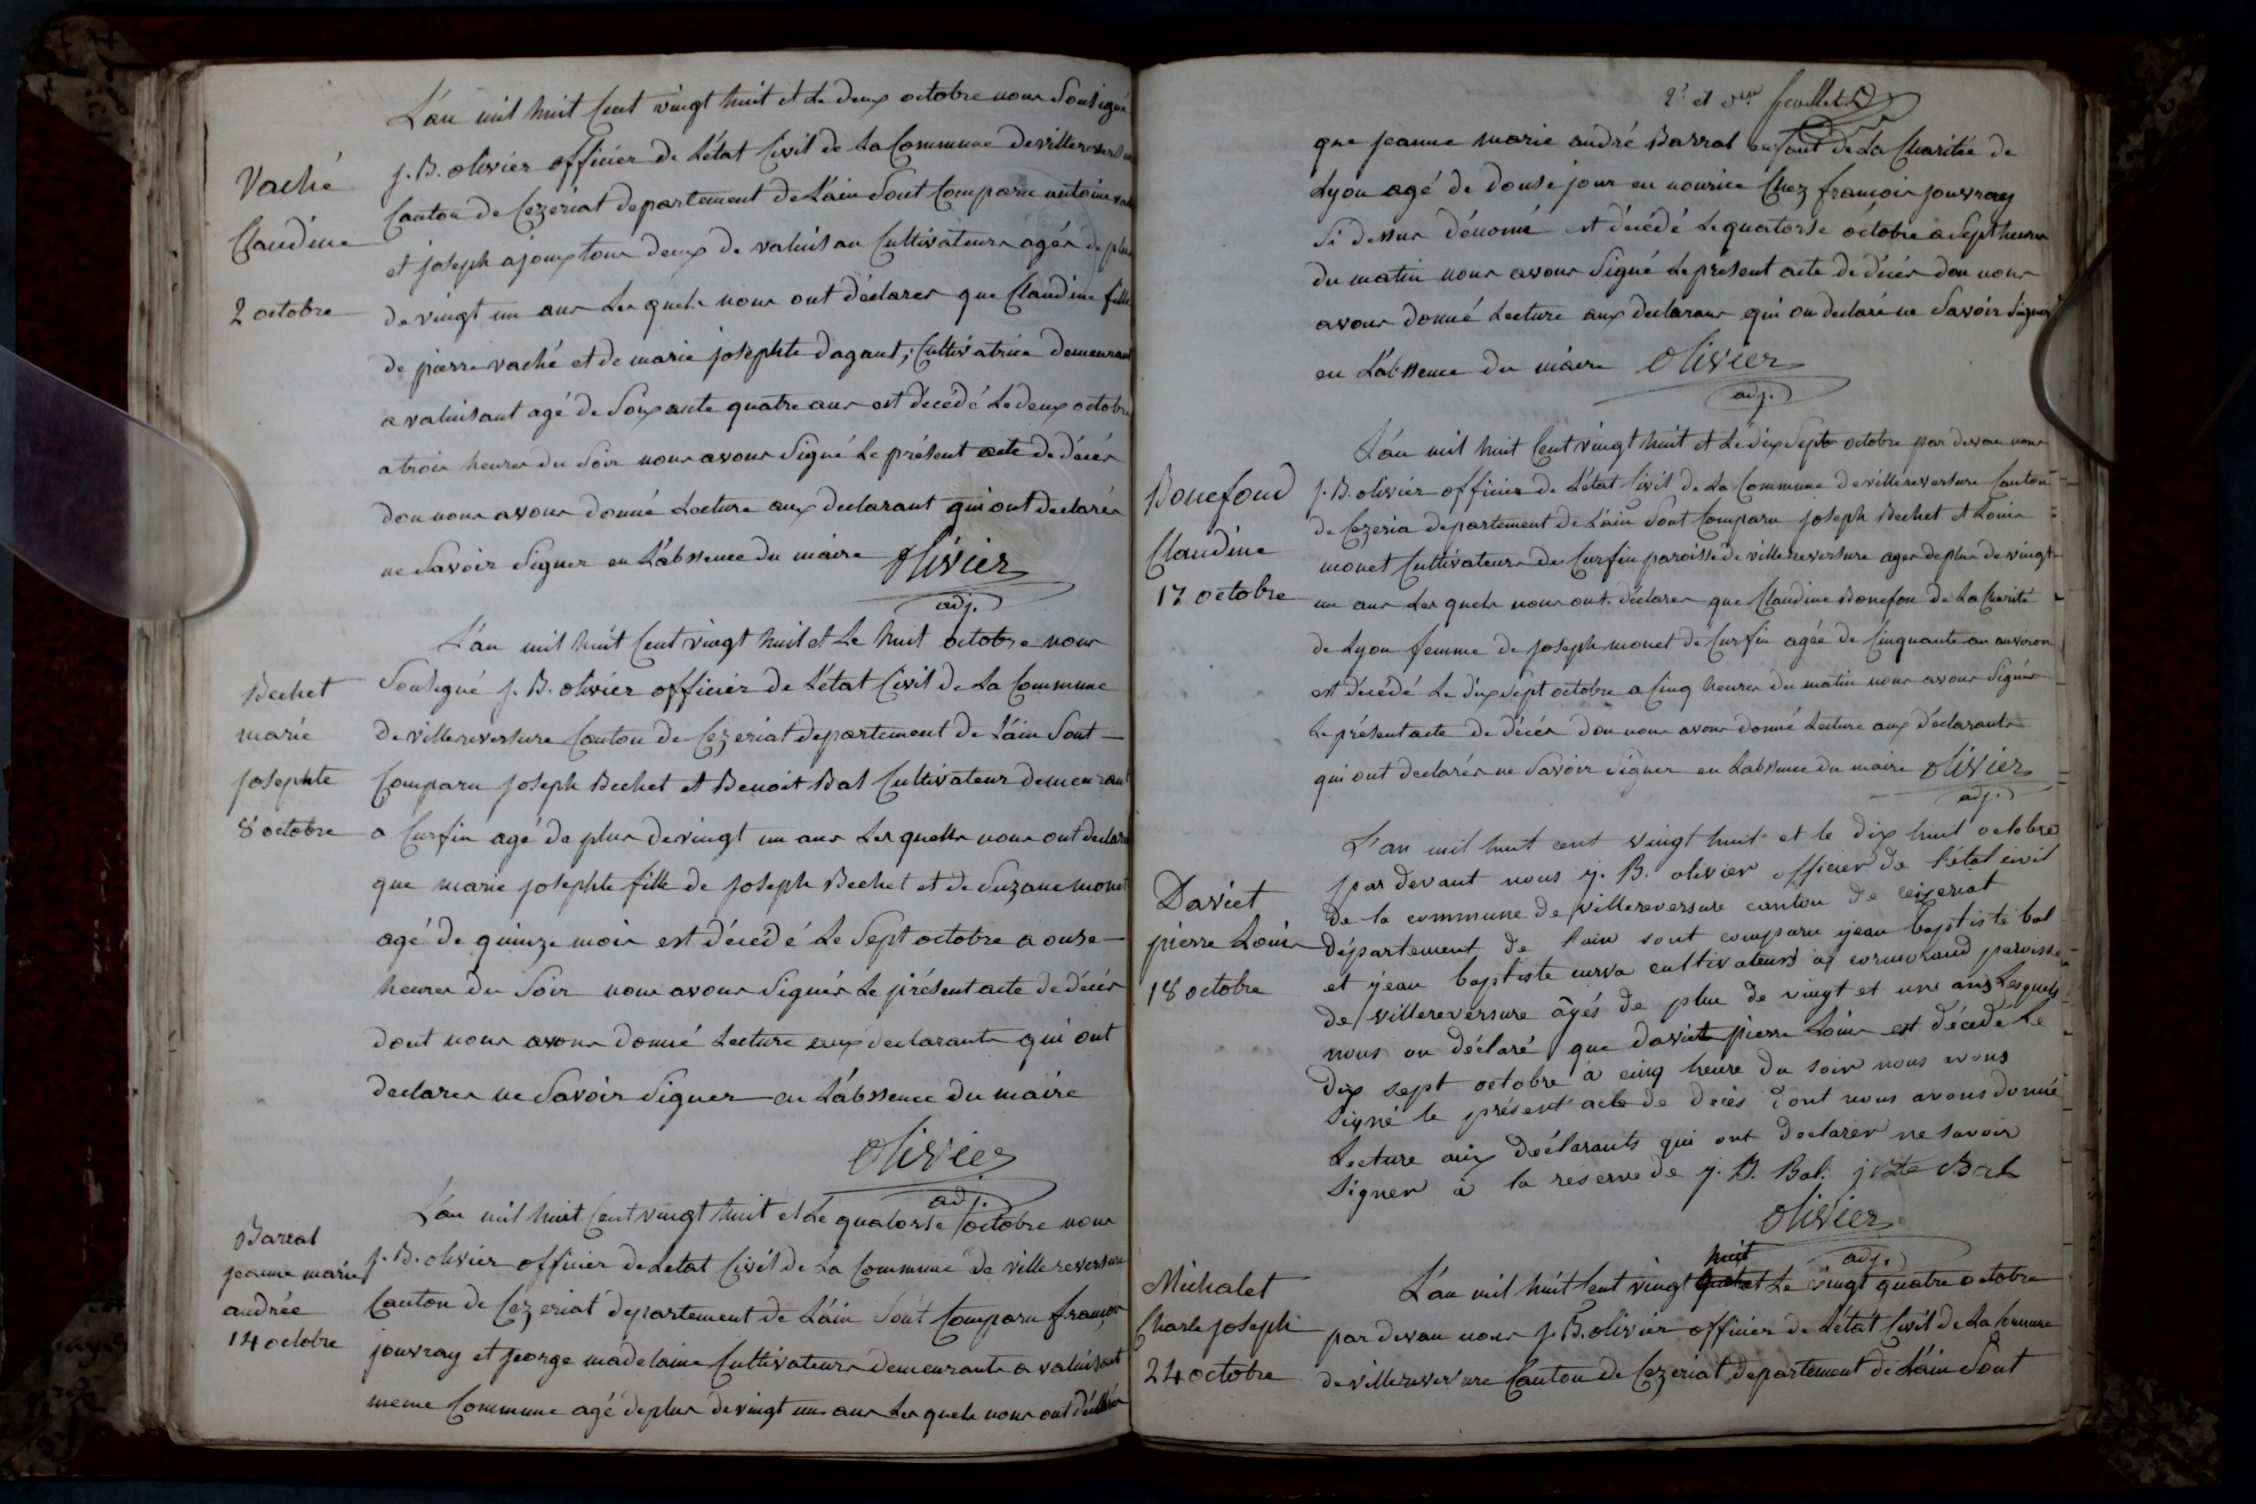 L'an mil huit Cent vingt huit et Le deux octobre nous Sousigné
Vaché
Claudine
2 octobre
J. B. olivier officier de L'état Civil de La Commune de villereversure
Canton de Cezeriat departement de L'ain Sont Comparu antoine
et joseph ajoux tous deux de valuisan Cultivateurs agés de plus
de vingt un ans Les quels nous ont déclarés que Claudine fille
de pierre vaché et de marie josephte dagant, Cultivatrice demeurant
a valuisant agé de Soixante quatre ans est décédé Le deux octobre
a trois heures du Soir nous avons Signé Le présent acte de décés
don nous avons donné Lecture aux declarant qui ont declarés
ne Savoir Signer en L'abssence du maire olivier
adj.
L'an mil huit Cent vingt huit et Le huit octobre nous
Bechet
marie
josephte
8 octobre
Sousigné J. B. olivier officier de L'état Civil de La Commune
de villereversure Canton de Cezeriat departement de L'ain Sont
Comparu joseph Bechet et Benoit Bal Cultivateur demeurant
a Curfin agé de plus de vingt un ans Les quells nous ont declaré
que marie josephte fille de joseph Bechet et de Suzane monet
agé de quinze mois est décédé Le Sept octobre a onse
heures du Soir nous avons Signés Le présent acte de décés
dont nous avons donné Lecture aux declarants qui ont
declarés ne Savoir Signer en L'abssence du maire
olivier
adj.
L'an mil huit Cent vingt huit et Le quatorse octobre nous
Barral
jeanne marie
andrée
14 octobre
J. B. olivier officier de Letat Civil de La Commune de villereversure
Canton de Cezeriat departement de L'ain Sont Comparu françois
jouvray et george madelaine Cultivateurs demeurants a valuisant
meme Commune agé de plus de vingt un ans Les quels nous ont déclarés
2e et feuillet
que jeanne marie andré Barral enfant de La Charitée de
Lyon agé de douse jour en nourice Chez francois jouvray
Si dessus dénomé est décédé Le quatorse octobre a Sept heures
du matin nous avons Signé Le présent acte de décés don nous
avons donné Lecture aux declarans qui on declaré ne Savoir Signer
en L'abssence du maire olivier
adj.
L'an mil huit Cent vingt huit et Le dix Sept octobre par devan nous
Bonefond
Claudine
17 octobre
J. B. olivier officier de L'état Civil de La Commune de villereversure Canton
de Cezeria departement de L'ain Sont Comparu joseph Bechet et Louis
monet Cultivateurs de Curfin paroisse de villereversure ages de plus de vingt
un ans Les quels nous ont declarés que Claudine Bonefon de La Charité
de Lyon femme de joseph monet de Curfin agée de Cinquante an anviron
est décédé Le dix Sept octobre a Cinq heures du matin nous avons Signés
Le présent acte de décés don nous avons donné Lecture aux déclarants
qui ont declarés ne Savoir Signer en Labssence du maire olivier
adj.
L'an mil huit cent vingt huit et le dix huit octobre
Daviet
pierre Louis
18 octobre
par devant nous j. B. olivier officier de l'état civil
de la commune de villereversure canton de ceizeriat
département de l'ain sont comparu jean baptiste bal
et jean baptiste curva cultivateurs à cormorand paroisse
de villereversure âgés de plus de vingt et un ans Lesquels
nous on déclaré que daviet pierre Louis est décédé Le
dix sept octobre à cinq heure du soir nous avons
signé le présent acte de décès dont nous avons donné
Lecture aux déclarants qui ont declarer ne savoir
signer à la réserve de j. B. Bal. j Bte Bal
olivier
adj.
Michalet
Charle joseph
24 octobre
huit
L'an mil huit Cent vingt et Le vingt quatre octobre
par devan nous J. B. olivier officier de L'état Civil de La Comune
de villereversure Canton de Cezeriat departement de L'ain Sont